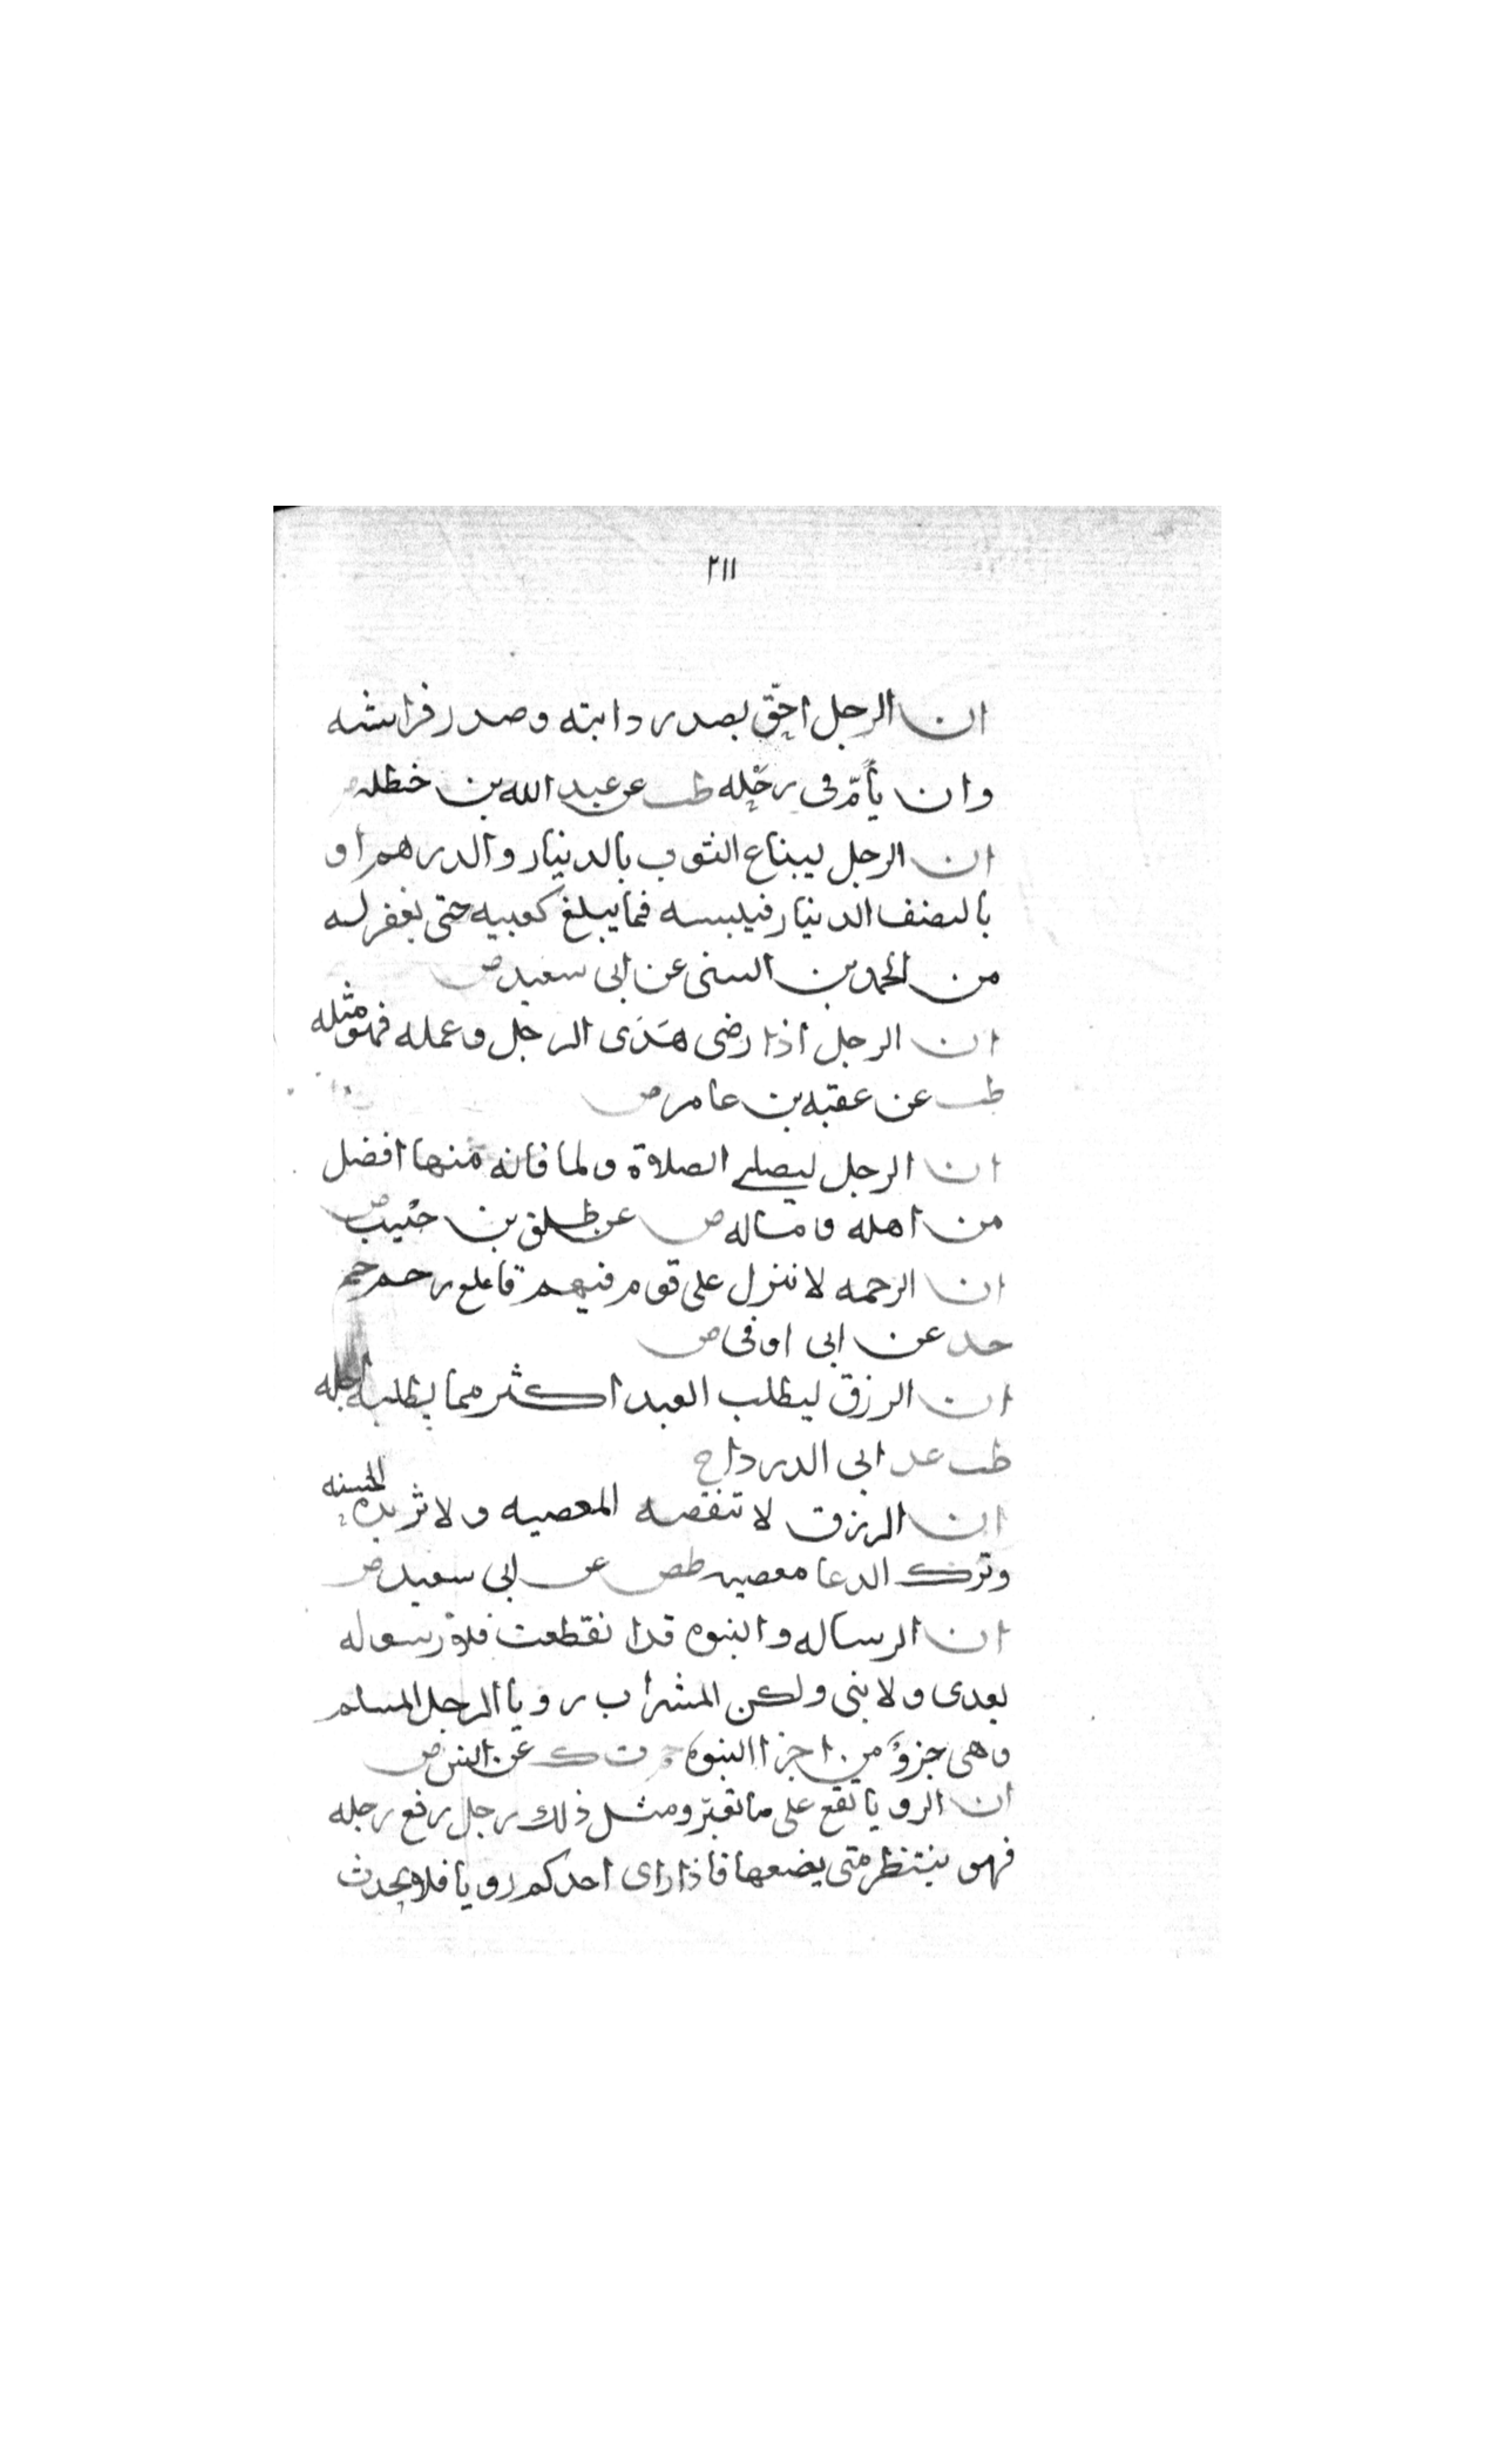 ٢١١
ان الرجل احق بصدر دابته وصدر فراشه
وان يأمّ فى رحله طب عن عبد الله بن حنظله
ان الرجل ليبتاع الثوب بالدينار والدرهم او
بالنصف الدينار فيلبسه فما يبلغ كعبيه حتى يغفر له
من الحمد بن السنى عن ابى سعيد ض
ان الرجل اذا رضى هَدْىَ الرجل وعمله فهو مثله
طب عن عقبه بن عامر ض
ان الرجل ليصلى الصلاة ولما فاته منها افضل
من اهله وماله ص عن طلق بن حبيب ض
ان الرحمه لا تنزل على قوم فيهم قاطع رحم
خد عن ابى اوفى ض
ان الرزق ليطلب العبد اكثر مما يطلبه اجله
طب عد ابى الدرداح
ان الرزق لا تنقصه المعصيه ولا تزيده الحسنه
وترك الدعا معصيه طص عن ابى سعيد ض
ان الرساله والنبوه قد انقطعت فلا رسول
بعدى ولا نبى ولكن المبشرات رويا الرجل المسلم
وهى جزؤ من اجزا النبوه حم ت ك عن انس ض
ان الرويا تقع على ما تعبّر ومثل ذلك رجل رفع رجله
فهو ينتظر متى يضعها فاذا راى احدكم رويا فلا يحدث